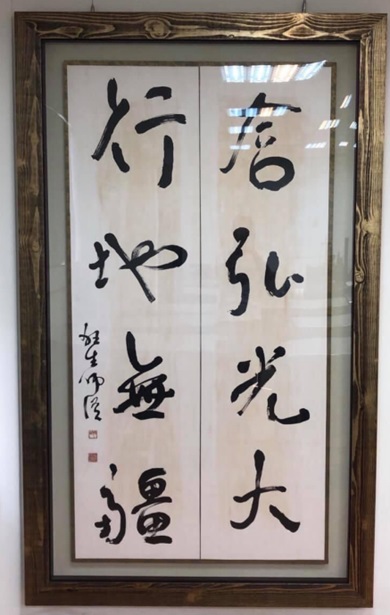 含弘光大
行地無疆